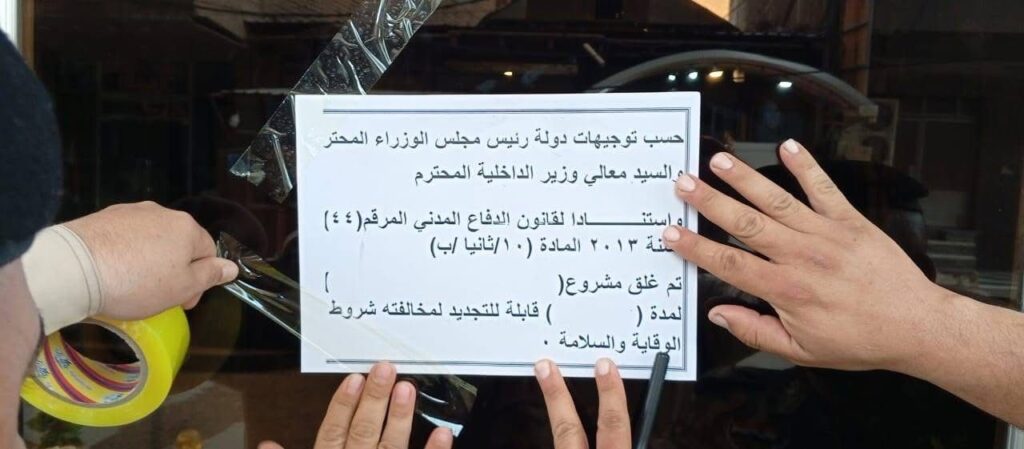 حسب توجيهات دولة رئيس مجلس الوزراء المحتر
والسيد معالي وزير الداخلية المحترم
واستنـــــــادا لقانون الدفاع المدني المرقم(٤٤)
لسنة ٢٠١٣ المادة (١٠/ثانيا /ب)
تم غلق مشروع( )
لمدة ( ) قابلة للتجديد لمخالفته شروط
الوقاية والسلامة ٠